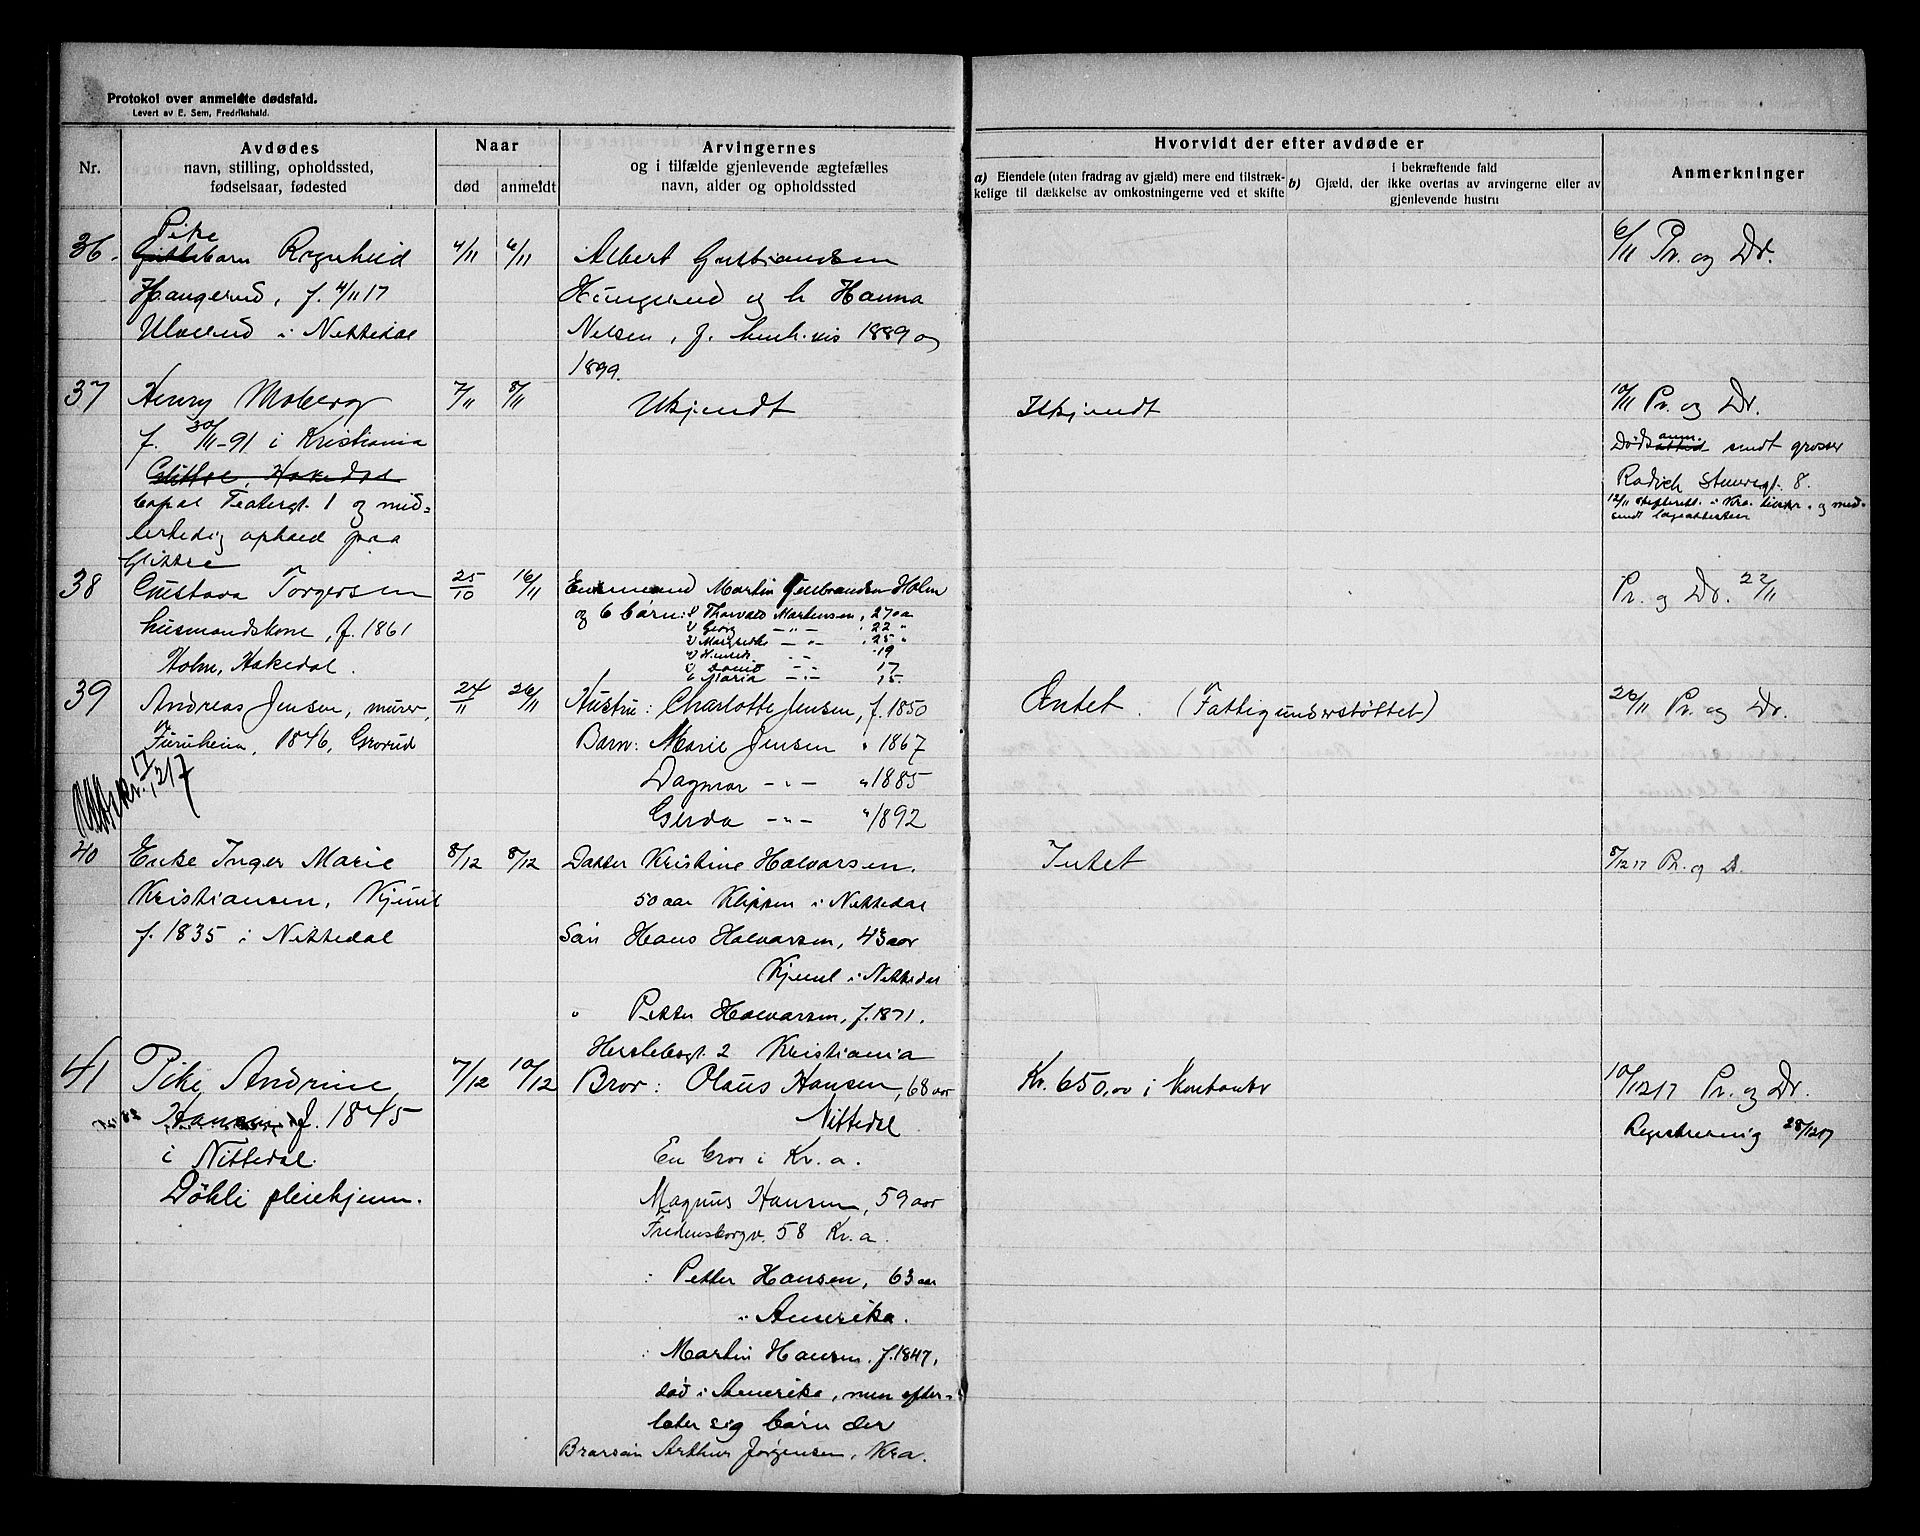 Protokol over anmeldte dødsfald.
Levert av E. Sem, Fredrikshald.
Nr.
Avdødes
navn, stilling, opholdssted,
fødselsaar, fødested
Naar
død
anmeldt
Arvingernes
og i tilfælde gjenlevende ægtefælles
navn, alder og opholdssted
Hvorvidt der efter avdøde er
a) Eiendele (uten fradrag av gjæld) mere end tilstræk-
kelige til dækkelse av omkostningerne ved et skifte
i bekræftende fald
b) Gjæld, der ikke overtas av arvingerne eller av
gjenlevende hustru
Anmerkninger
36.
Pike
Ragnhild
f. 4/11 17
i Nittedal
4/11
6/11
Albert
og h Hanna
Nilsen, f. 1889 og
1899.
6/11 Pr. og Dr.
37
Henry Moberg
f. 30/11-91 i Kristiania
Glittre, Hakedal
Teatergt. 1 og mid-
lertidig ophold paa
Glittre
7/11
8/11
Ukjendt
Ukjendt
10/11 Pr. og Dr.
anm.
sendt grosser
8.
12/11 i Kra. og med-
sendt
38
Gustava Torgersen
husmandskone, f. 1861
Holm, Hakedal.
25/10
16/11
Enkemand Martin Gulbrandsen Holm
og 6 børn: 1) Thorvald Martinsen, 27 aa
2) Georg — " — 22 "
3) — " — 25 "
4) 19
5) — " — 17
6 Maria — " — 15.
Pr. og Dr. 22/11
39
Andreas Jensen, murer,
Furuheim, 1846, Grorud
24/11
26/11
Hustru: Charlotte Jensen, f. 1850
Barn: Marie Jensen " 1867
Dagmar — " — " 1885
Gerda — " — " 1892
Intet. (Fattigunderstøttet)
26/11 Pr. og Dr.
17/1, 217
40
Enke Inger Marie
Kristiansen, Kjuul
f. 1835 i Nittedal
8/12
8/12
Datter Kristine Halvorsen.
50 aar Klippen i Nittedal
Søn Hans Halvorsen, 43 aar
Kjuul i Nittedal
" Petter Halvorsen, f. 1871.
Herslebsgt. 2 Kristiania
Intet
8/12 17 Pr. og D.
41
Pike, Andrine
Hansen f. 1845
i Nittedal.
Døhli pleiehjem.
7/12
10/12
Bror: Olaus Hansen, 68 aar
Nittedal
En bror i Kr.a.
Magnus Hansen, 59 aar
Fredensborgv. 58 Kr.a.
: Petter Hansen, 63 aar
i Amerika.
: Martin Hansen. f. 1847,
død i Amerika, men efter-
later sig børn der
Brorsøn Arthur Jørgensen, Kra.
Kr. 650,00 i kontanter
10/12 17 Pr. og Dr.
Registrering 28/12 17